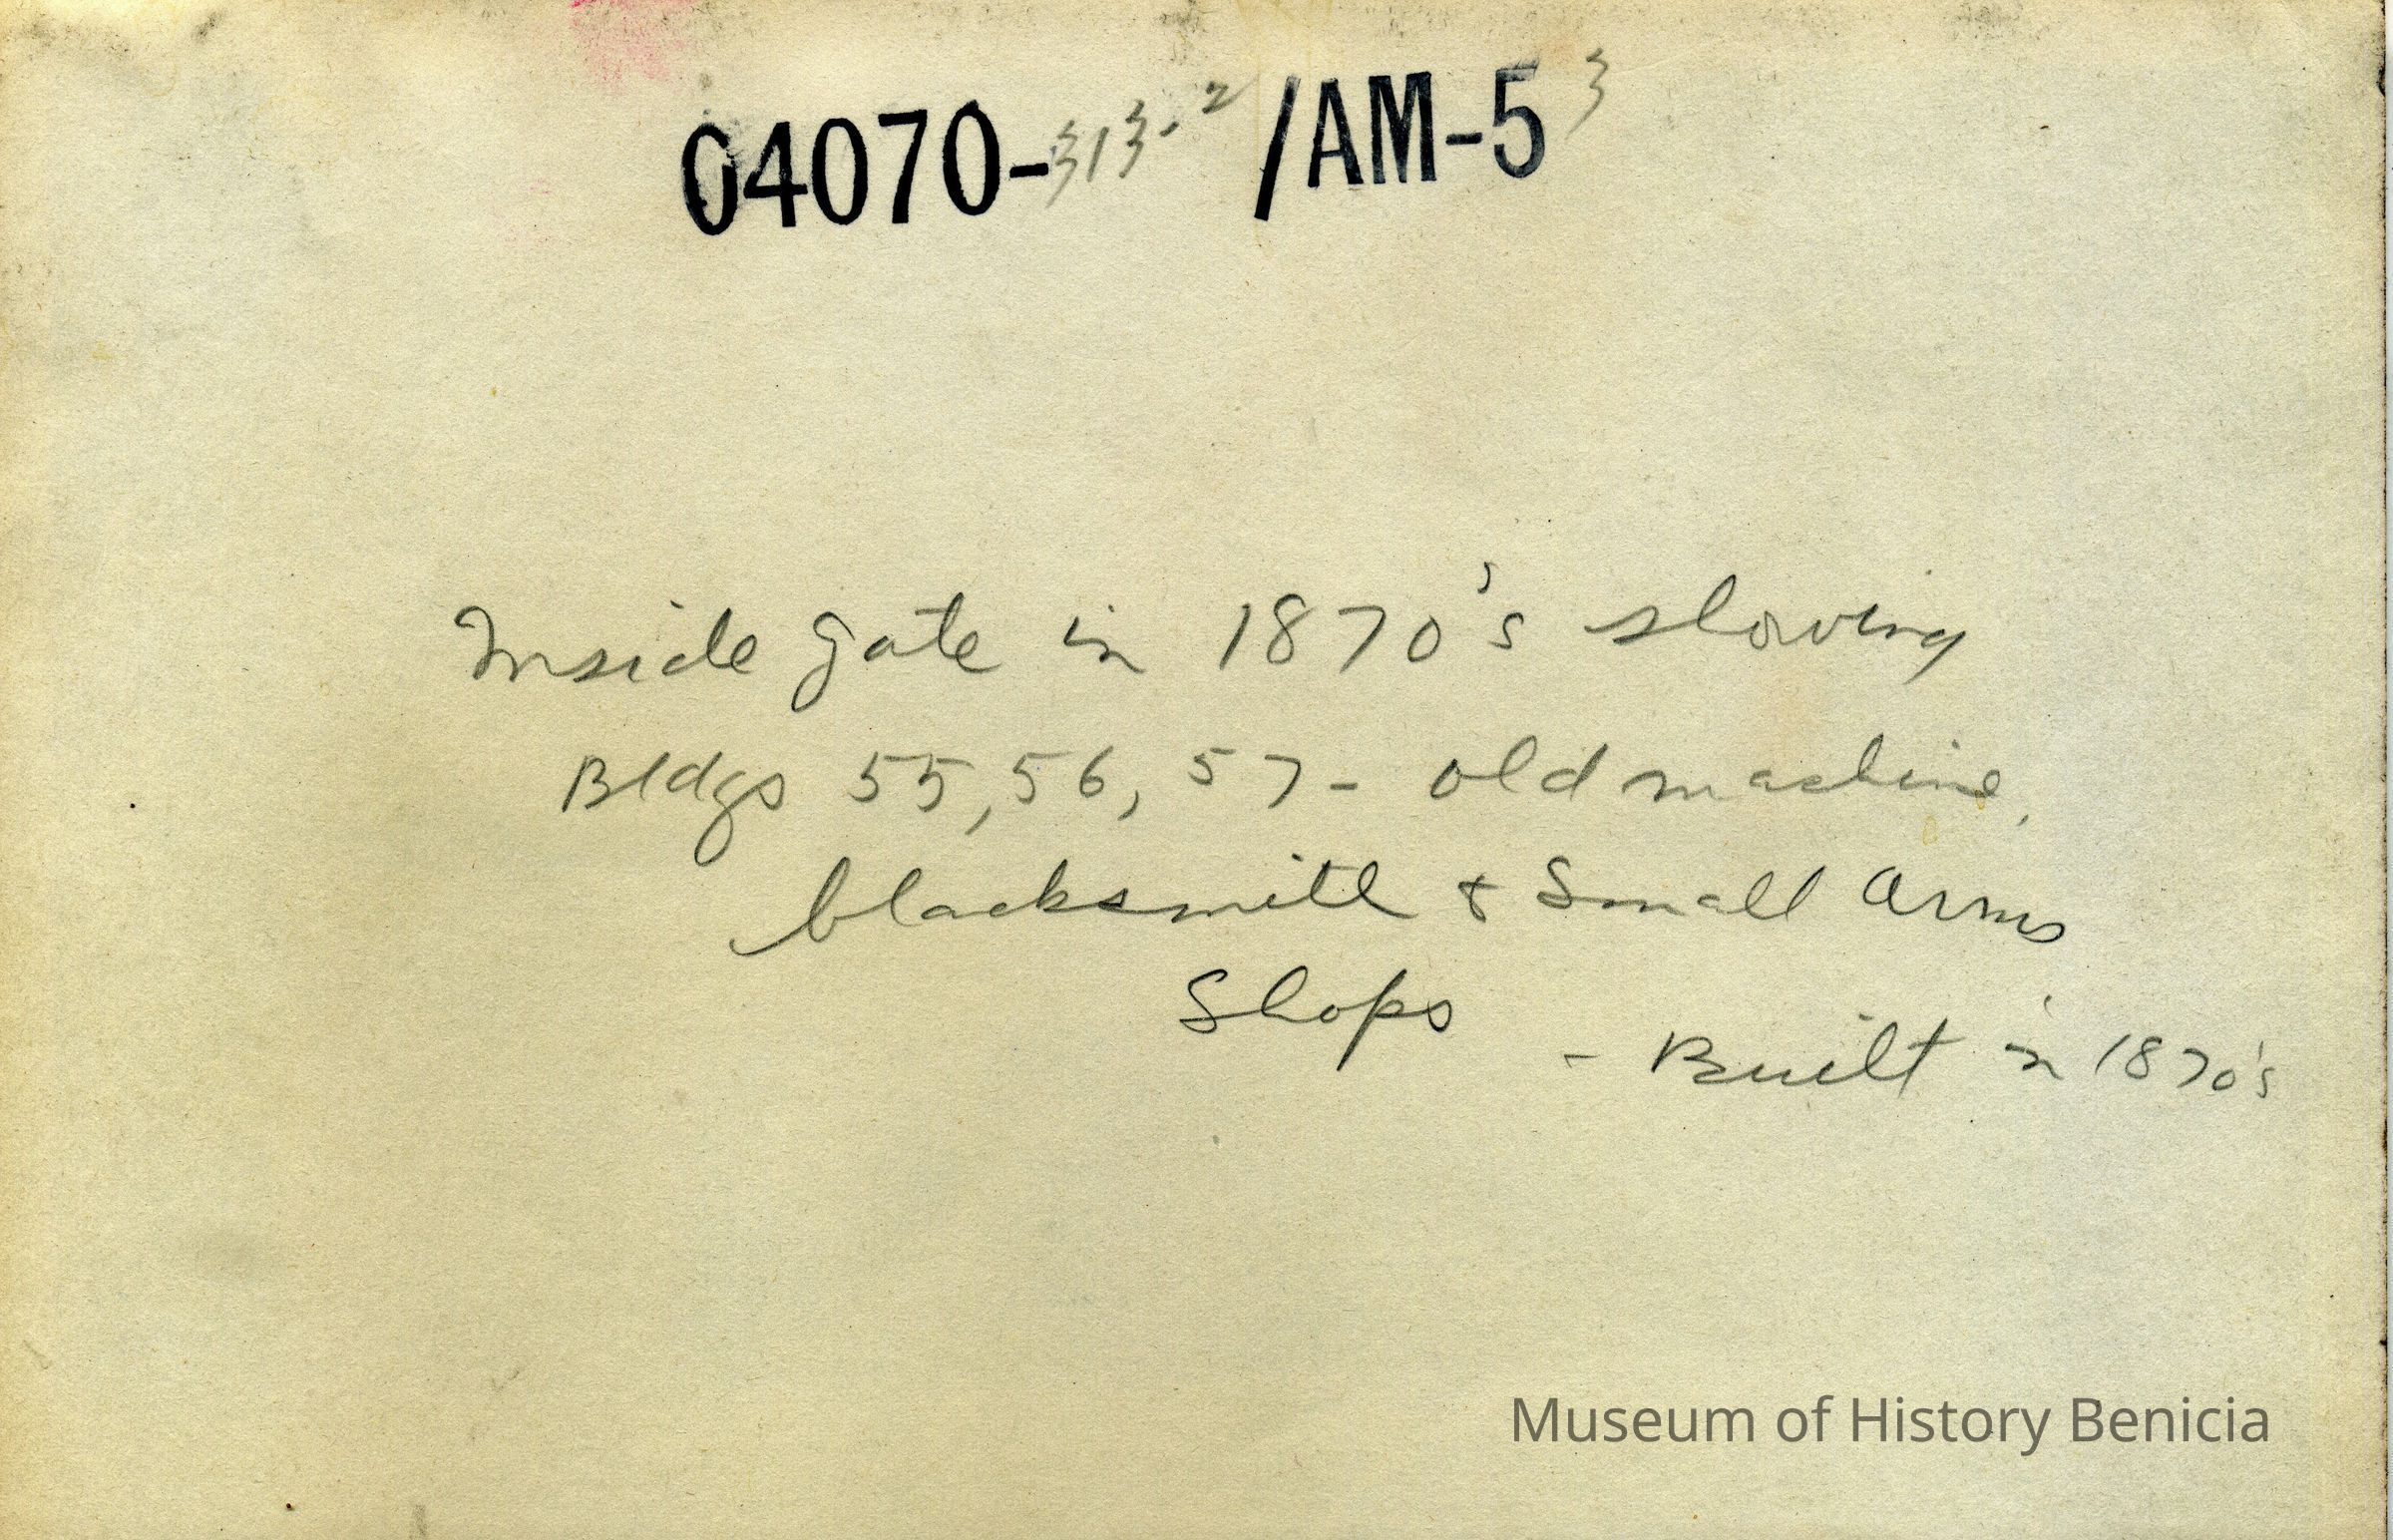 04070-313-2 /AM-53
Inside gate in 1870's showing
Bldgs 55, 56, 57 - old machine,
blacksmith & Small Arms
Shops
- Built in 1870's
Museum of History Benicia